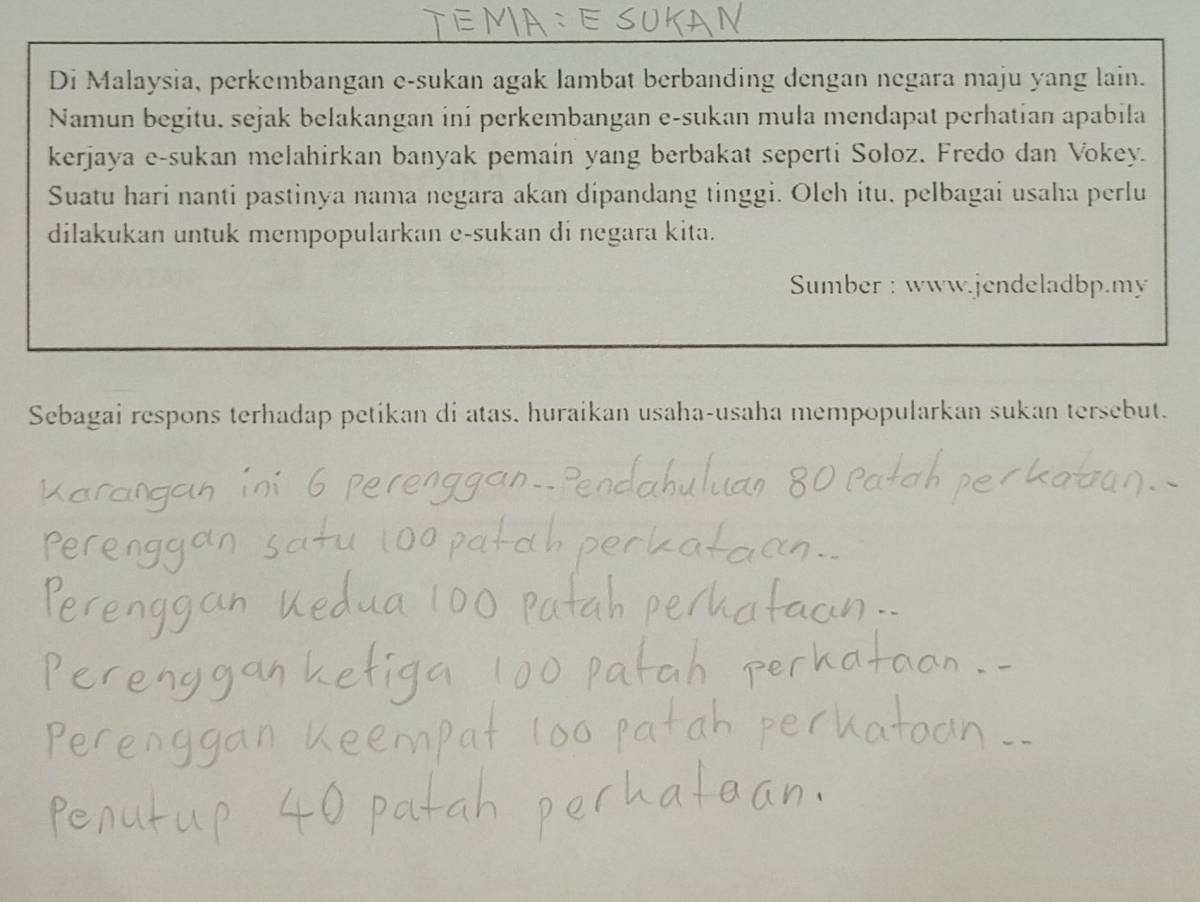 TEMA: E SUKAN
Di Malaysia, perkembangan e-sukan agak lambat berbanding dengan negara maju yang lain.
Namun begitu, sejak belakangan ini perkembangan e-sukan mula mendapat perhatian apabila
kerjaya e-sukan melahirkan banyak pemain yang berbakat seperti Soloz, Fredo dan Vokey.
Suatu hari nanti pastinya nama negara akan dipandang tinggi. Oleh itu, pelbagai usaha perlu
dilakukan untuk mempopularkan e-sukan di negara kita.
Sumber : www.jendeladbp.my
Sebagai respons terhadap petikan di atas, huraikan usaha-usaha mempopularkan sukan tersebut.
Karangan ini 6 perenggan.. Pendahuluan 80 patah perkataan..
Perenggan satu 100 patah perkataan..
Perenggan kedua 100 patah perkataan..
Perenggan ketiga 100 patah perkataan..
Perenggan keempat 100 patah perkataan..
Penutup 40 patah perkataan.